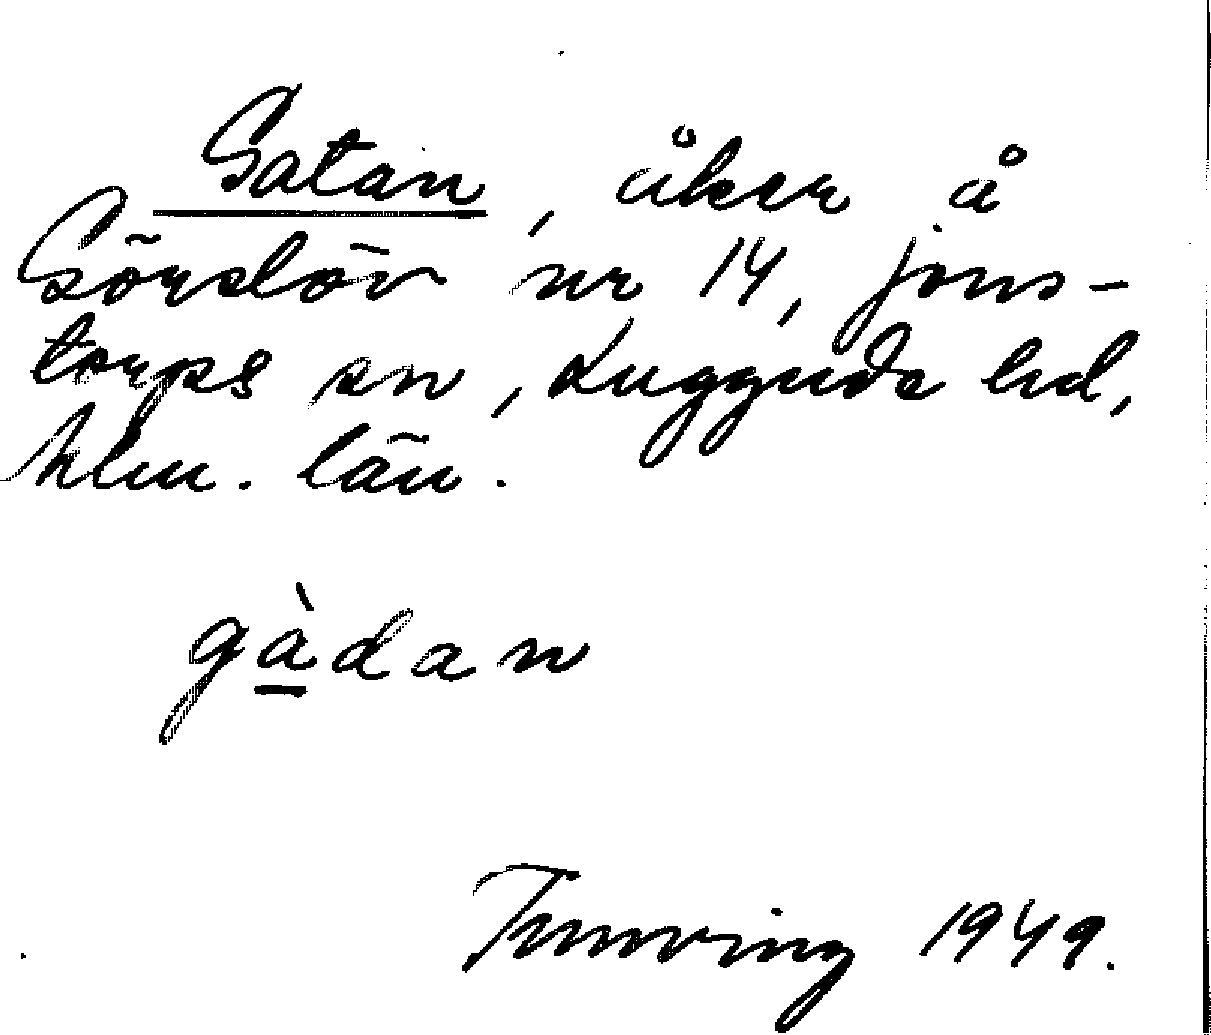 Gatan, åker å
Görslöv nr 14, Jons-
torps sn, Luggude hd,
Mlm. län.
gàdan
1949.